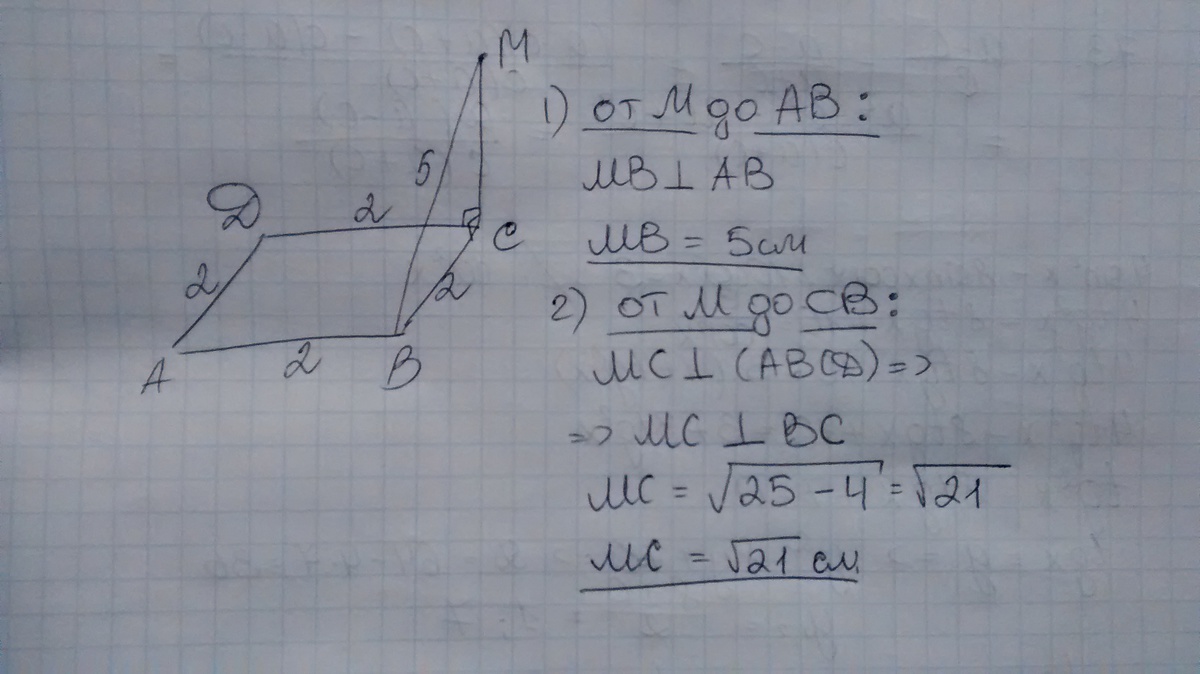 M
5
D
2
C
2
2
A
2
B
1) от M до AB:
MB ⊥ AB
MB = 5см
2) от M до CB:
MC ⊥ (ABCD) =>
=> MC ⊥ BC
MC = √25 - 4 = √21
MC = √21 см